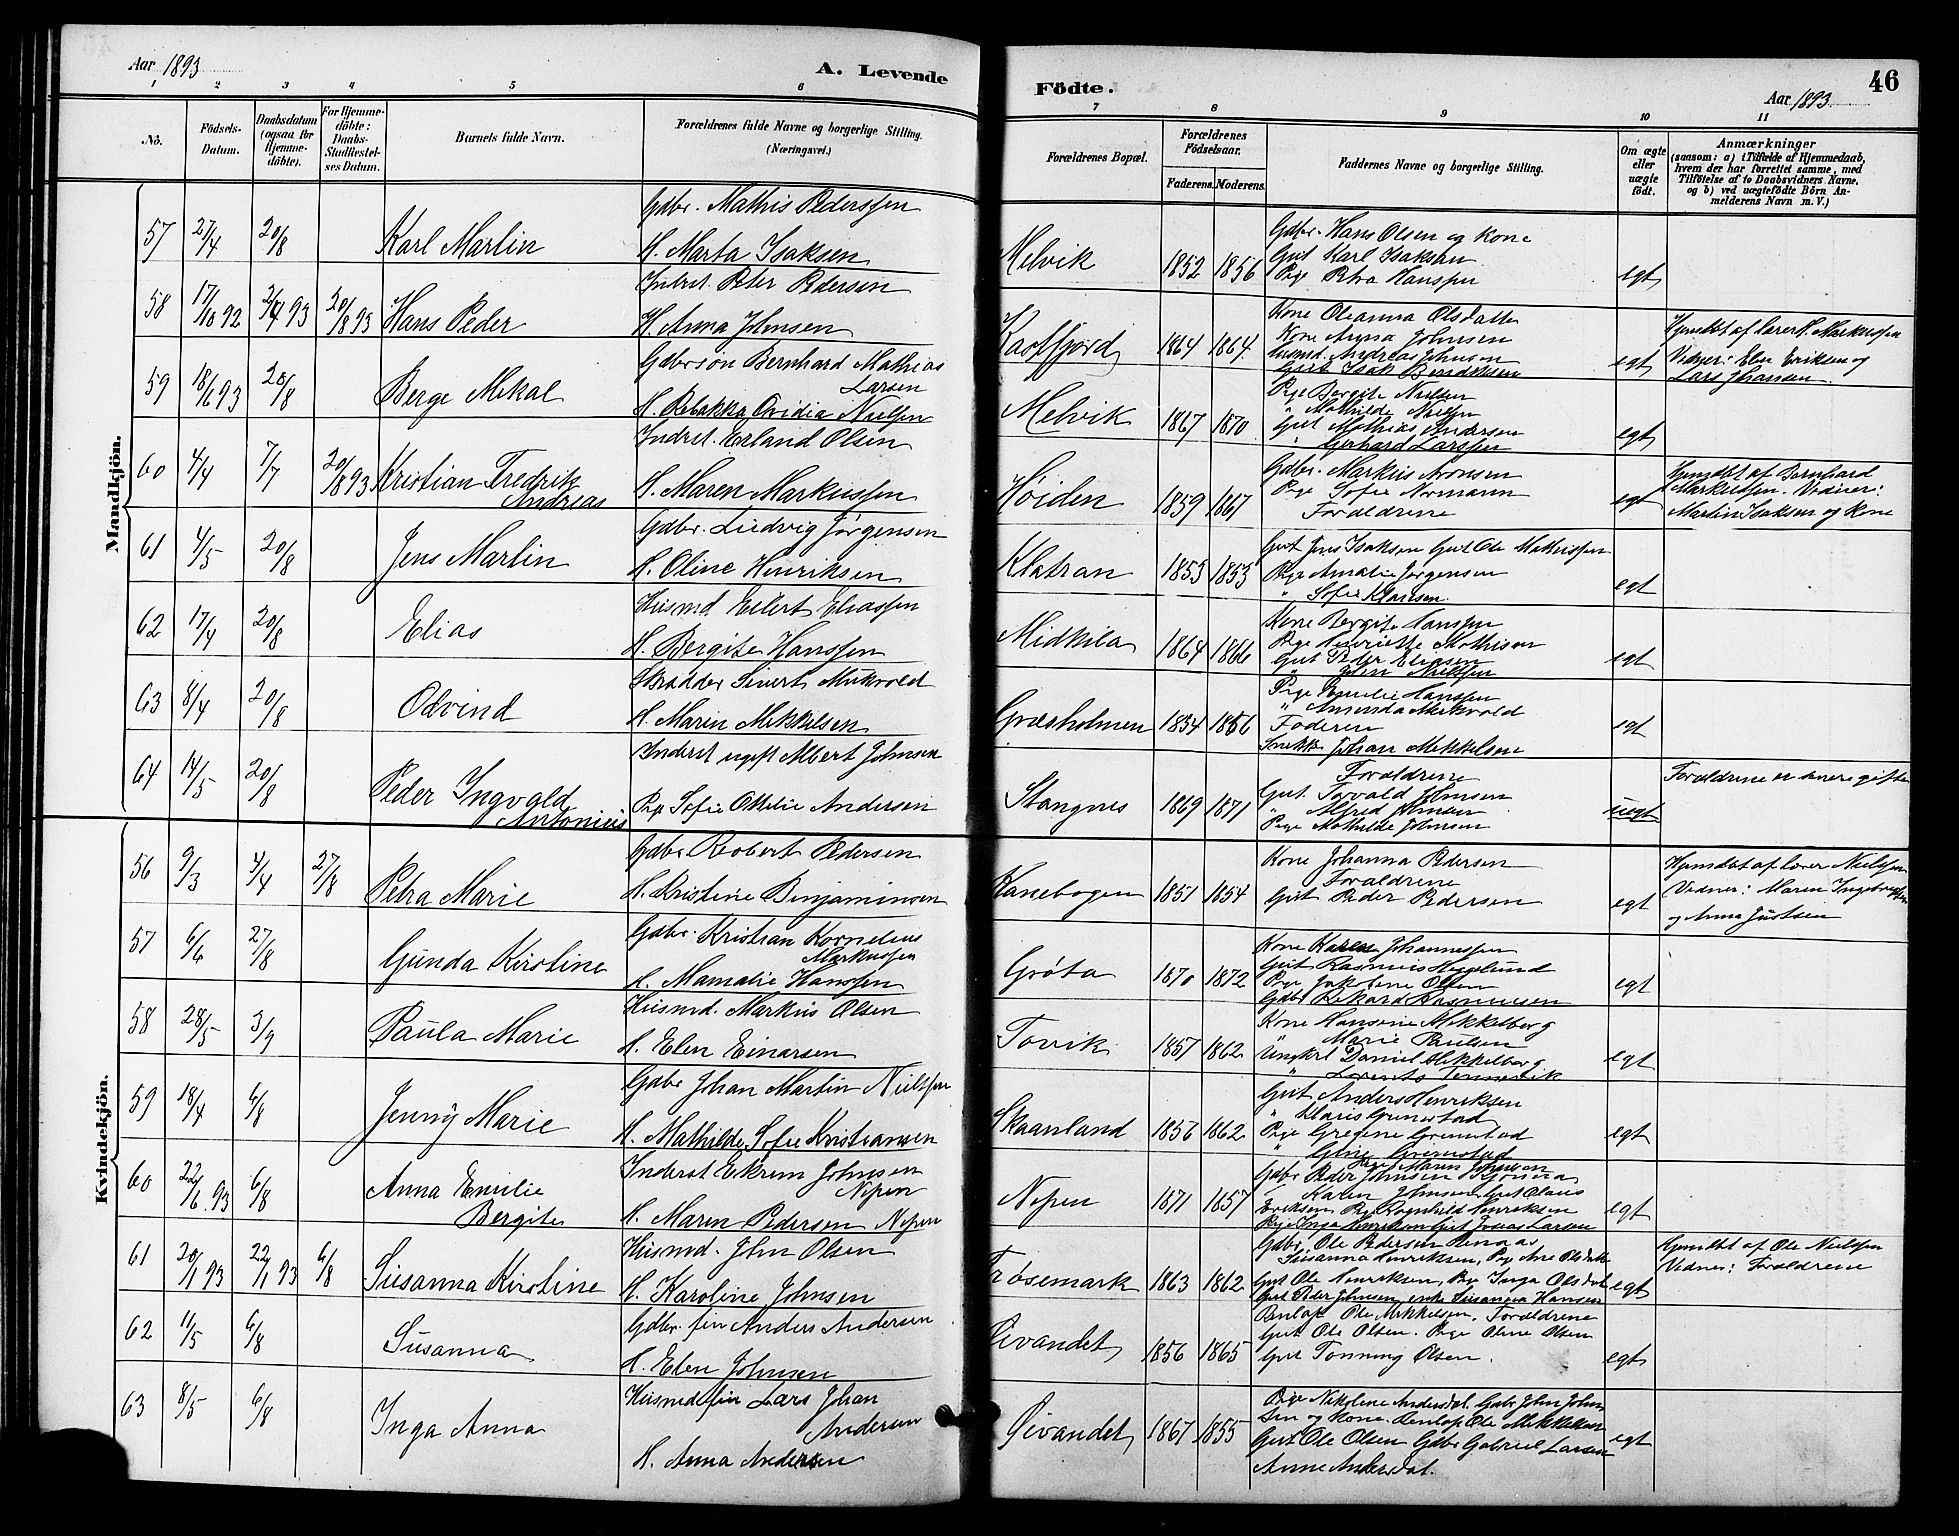 Aar 1893
A. Levende
Födte.
Aar 1893
46
1 2 3 4 5 6 7 8 9 10 11
No.
Födsels-
Datum.
Daabsdatum
(ogsaa for
Hjemme-
döbte).
For Hjemme-
döbte:
Daabs-
Stadfæstel-
ses Datum.
Barnets fulde Navn.
Forældrenes fulde Navne og borgerlige Stilling.
(Næringsvei.)
Forældrenes Bopæl.
Forældrenes
Födselsaar.
Faderens. Moderens.
Faddernes Navne og borgerlige Stilling.
Om ægte
eller
uægte
födt.
Anmærkninger
(saasom: a) i Tilfælde af Hjemmedaab,
hvem der har forrettet samme, med
Tilföielse af to Daabsvidners Navne,
og b) ved uægtefödte Börn An-
melderens Navn m. V.)
Mandkjön.
57 27/4 20/8 Karl Martin
Gdbr. Mathis Pederssen
H. Marta Isaksen
Melvik 1852 1856
Gdbr. Hans Olsen og Kone
Gut Karl Isaksen
Pige Petra Hanssen
egt
58 17/10 92 2/4 93 20/8 93 Hans Peder
Inderst. Peter Pedersen
H. Anna Johnsen
Kasfjord 1864 1864
Kone Oleanna Olsdatter
Kone Anna Johnsen
Husmd. Andreas Johnsen
Gut Isak Bendiksen
egt
Hjemdbt af Lærer H. Markussen
Vidner: Elen Eriksen og
Lars Johansen
59 18/6 93 20/8 Berge Mikal
Gdbr søn Bernhard Mathias
Larsen
H. Rebakka Ovidia Nielsen
Melvik 1867 1870
Pige Bergite Nielsen
" Mathilde Nielsen
Gut Mathias Andersen
" Gerhard Larssen
egt
60 4/4 7/7 20/8 93 Kristian Fredrik
Andreas
Indrst. Erland Olsen
H. Maren Markussen
Høiden 1859 1867
Gdbr. Markus Aronsen
Pige Sofie Normann
Foraldrene
egt
Hjemdbt af Bernhard
Markussen. Vidner:
Martin Isaksen og Kone
61 4/5 20/8 Jens Martin
Gdbr. Ludvig Jørgensen
H. Oline Henriksen
Klatran 1853 1853
Gut Jens Isaksen Gut Ole Mathissen
Pige Amalie Jørgensen
" Sofie Klausen.
egt
62 17/4 20/8 Elias
Husmd Eilert Eliassen
H. Bergite Hanssen
Midkila 1864 1866
Kone Bergite Hanssen
Pige Henriette Mathisen
Gut Peder Eliasen
egt
63 8/4 20/8 Odvind
Skrædder Sivert Mukvold
H. Marin Mikkelsen
Græsholmen 1834 1856
Pige Emilie Hanssen
" Amanda Mukvold
Faderen
Snekk. Johan Mikkelsen
egt
64 14/5 20/8 Peder Ingvald
Antonius
Inderst ugift Albert Johnsen
Pige Sofie Ottelie Andersen
Stangnes 1869 1871
Foraldrene
Gut. Torvald Johnsen
" Alfred Johnsen
Pige Mathilde Johnsen
uegt
Foraldrene er senere gifte
Kvindekjön.
56 9/3 4/4 27/8 Petra Marie
Gdbr Robert Pedersen
H. Kristine Benjaminsen
Kanebogen 1851 1854
Kone Johanna Pedersen
Foraldrene
Gut Peder Pedersen
egt
Hjemdbt af lærer Nielssen
Vidner: Maren Ingebrigtsen
og Anna Justsen
57 6/6 27/8 Gunda Kirstine
Gdbr. Kristian Kornelius
Markussen
H. Mamalie Hanssen
Grøta 1870 1872
Kone Karen Johannessen
Gut Rasmus Hegelund
Pige Jakobine Olsen
Gdbr Rikard Rasmussen
egt
58 28/5 3/9 Paula Marie
Husmd. Markus Olsen
H. Elen Einarsen
Tovik 1857 1862
Kone Hansine Mikkelborg
" Marie Paulsen
Ungkrl Daniel Mikkelborg
" Lorents Tennevik
egt
59 18/4 6/8 Jenny Marie
Gdbr Johan Martin Nielssen
H. Mathilde Sofie Kristiansen
Skaanland 1856 1862
Gut Anders Henriksen
" Haris Grimstad
Pige Gregine Grimstad
egt
60 22/6.93 6/8 Anna Emilie
Bergite
Inderst Eskrim Johnsen
Nipen
H. Maren Pedersen Nipen
Nipen 1871 1857
Pige Maren Johnsen
Gdbr Peder Johnsen
Karen Johnsen, Gut Claus
Eriksen Pige Ragnhild Henriksen
Pige Inga Henriksen Gut Josias Larsen
egt
61 20/1 93 22/1 93 6/8 Susanna Kirstine
Husmd. John Olsen
H. Karoline Johnsen
Trøsemark 1863 1862
Gdbr. Ole Pedersen Renaas
Susanna Henriksen, Pige Ane Olsdatter
Gut Ole Henriksen, Pige Inga Olsdat
Gut Peder Johnsen, enke Susanna Hansen
egt
Hjemdbt af Ole Nielssen
Vidner: Foraldrene
62 11/5 6/8 Susanna
Gdbr. fin Anders Andersen
H. Elen Johnsen
Øvandet 1856 1865
Renlap Ole Mikkelsen. Foraldrene
Gut Ole Olsen. Pige Oline Olsen
Gut Tonning Olsen.
egt
63 8/5 6/8 Inga Anna
Husmd fin Lars Johan
Andersen
H. Anna Andersen
Øivandet 1867 1855
Pige Nikoline Andersdat. Gdbr John John-
sen og Kone. Renlap Ole Mikkelsen
Gut Ole Olsen Gdbr Gabriel Larsen
Anne Andersdat.
egt